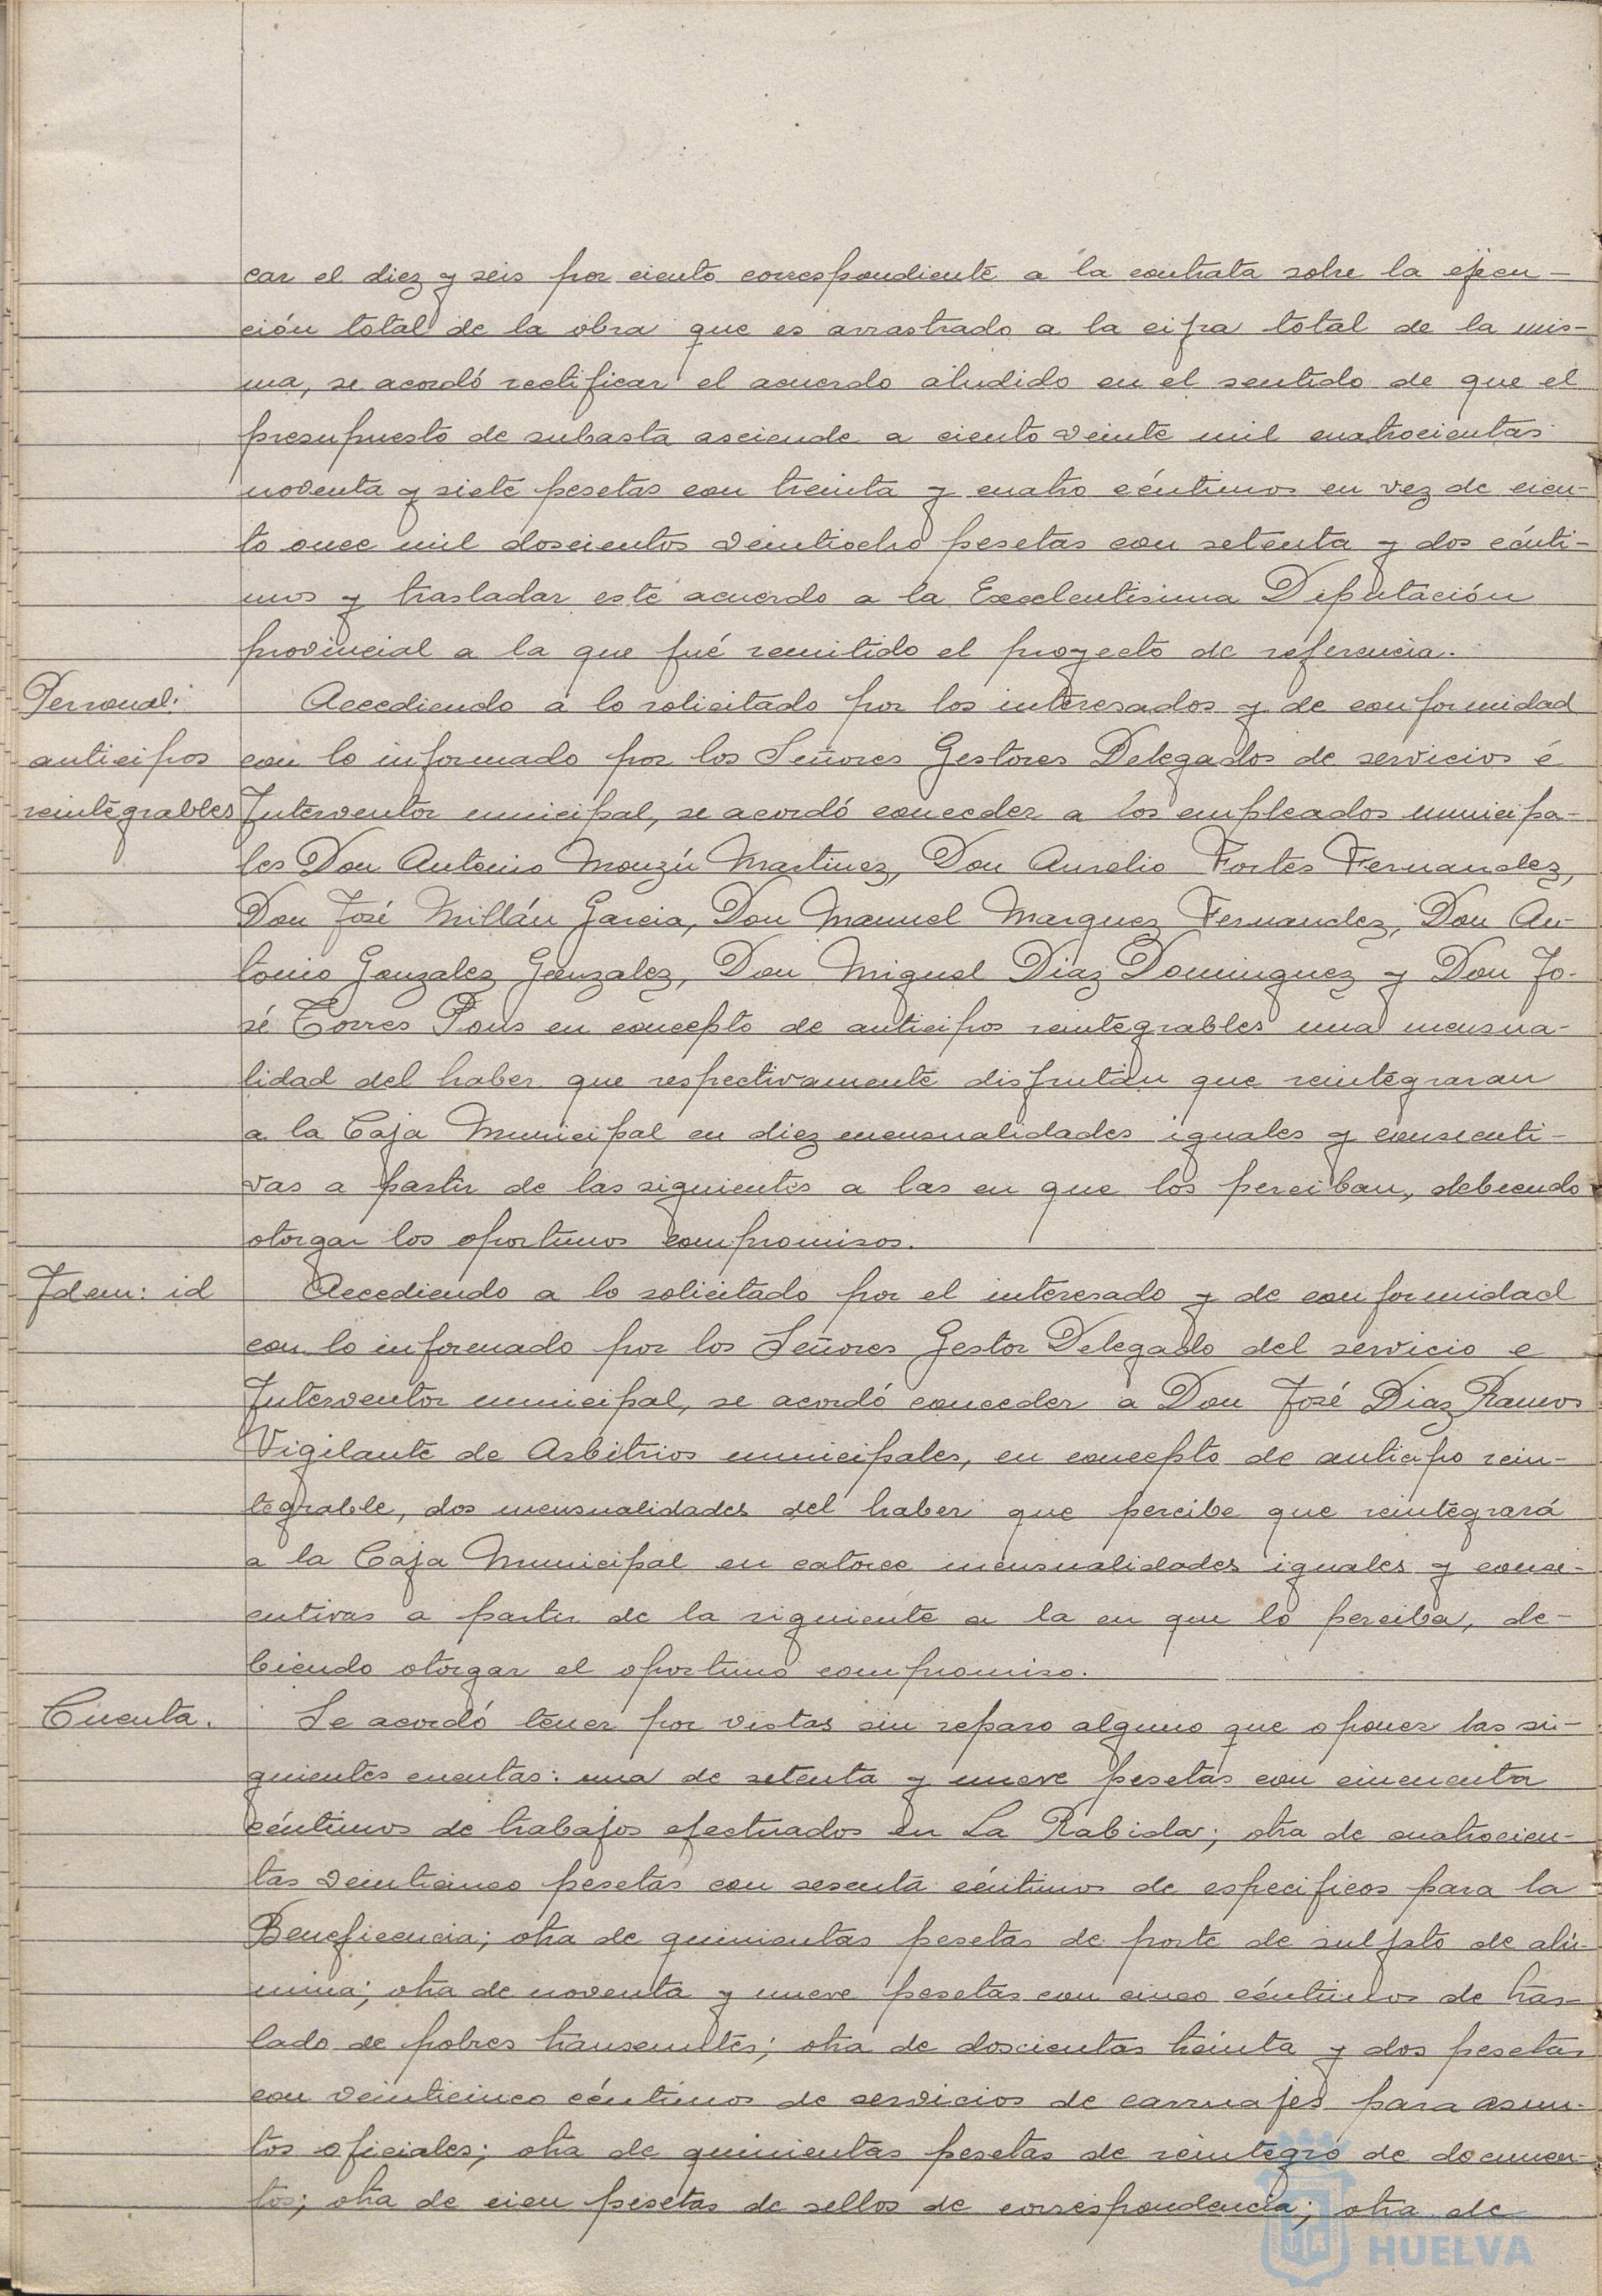 car el diez y seis por ciento correspondiente a la contrata sobre la ejecu-
ción total de la obra que es arrastrado a la cifra total de la mis-
ma, se acordó rectificar el acuerdo aludido en el sentido de que el
presupuesto de subasta asciende a ciento veinte mil cuatrocientas
noventa y siete pesetas con treinta y cuatro céntimos en vez de cien-
to once mil doscientos veintiocho pesetas con setenta y dos cénti-
mos y trasladar este acuerdo a la Excelentisima Diputación
provincial a la que fué remitido el proyecto de referencia.
Personal: Accediendo a lo solicitado por los interesados y de conformidad
anticipos con lo informado por los Señores Gestores Delegados de servicios é
reintegrables Interventor municipal, se acordó conceder a los empleados municipa-
les Don Antonio Monzú Martinez, Don Aurelio Fortes Fernandez,
Don José Millán Garcia, Don Manuel Marquez Fernandez, Don An-
tonio Gonzalez Gonzalez, Don Miguel Diaz Dominguez y Don Jo-
sé Torres Pons en concepto de anticipos reintegrables una mensua-
lidad del haber que respectivamente disfrutan que reintegraran
a la Caja Municipal en diez mensualidades iguales y consecuti-
vas a partir de las siguientes a las en que los perciban, debiendo
otorgar los oportunos compromisos.
Idem: id Accediendo a lo solicitado por el interesado y de conformidad
con lo informado por los Señores Gestor Delegado del servicio e
Interventor municipal, se acordó conceder a Don José Diaz Ramos
Vigilante de Arbitrios municipales, en concepto de anticipo rein-
tegrable, dos mensualidades del haber que percibe que reintegrará
a la Caja Municipal en catorce mensualidades iguales y conse-
cutivas a partir de la siguiente a la en que lo perciba, de-
biendo otorgar el oportuno compromiso.
Cuenta. Se acordó tener por vistas sin reparo alguno que oponer las si-
guientes cuentas: una de setenta y nueve pesetas con cincuenta
céntimos de trabajos efectuados en La Rabida; otra de cuatrocien-
tas veinticinco pesetas con sesenta céntimos de especificos para la
Beneficencia; otra de quinientas pesetas de porte de sulfato de alú-
mina; otra de noventa y nueve pesetas con cinco céntimos de tras-
lado de pobres transeuntes; otra de doscientas treinta y dos pesetas
con veinticinco céntimos de servicios de carruajes para asun-
tos oficiales; otra de quinientas pesetas de reintegro de documen-
tos; otra de cien pesetas de sellos de correspondencia; otra de
HUELVA